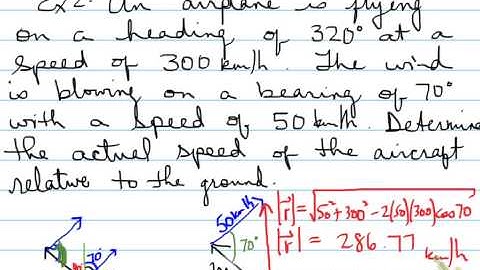 Ex2: An airplane is flying
on a heading of 320° at a
speed of 300 km/h. The wind
is blowing on a bearing of 70°
with a speed of 50 km/h. Determine
the actual speed of the aircraft
relative to the ground.
50 km/h
|r| = √50² + 300² - 2(50)(300)cos70
70°
70°
|r| = 286.77 km/h